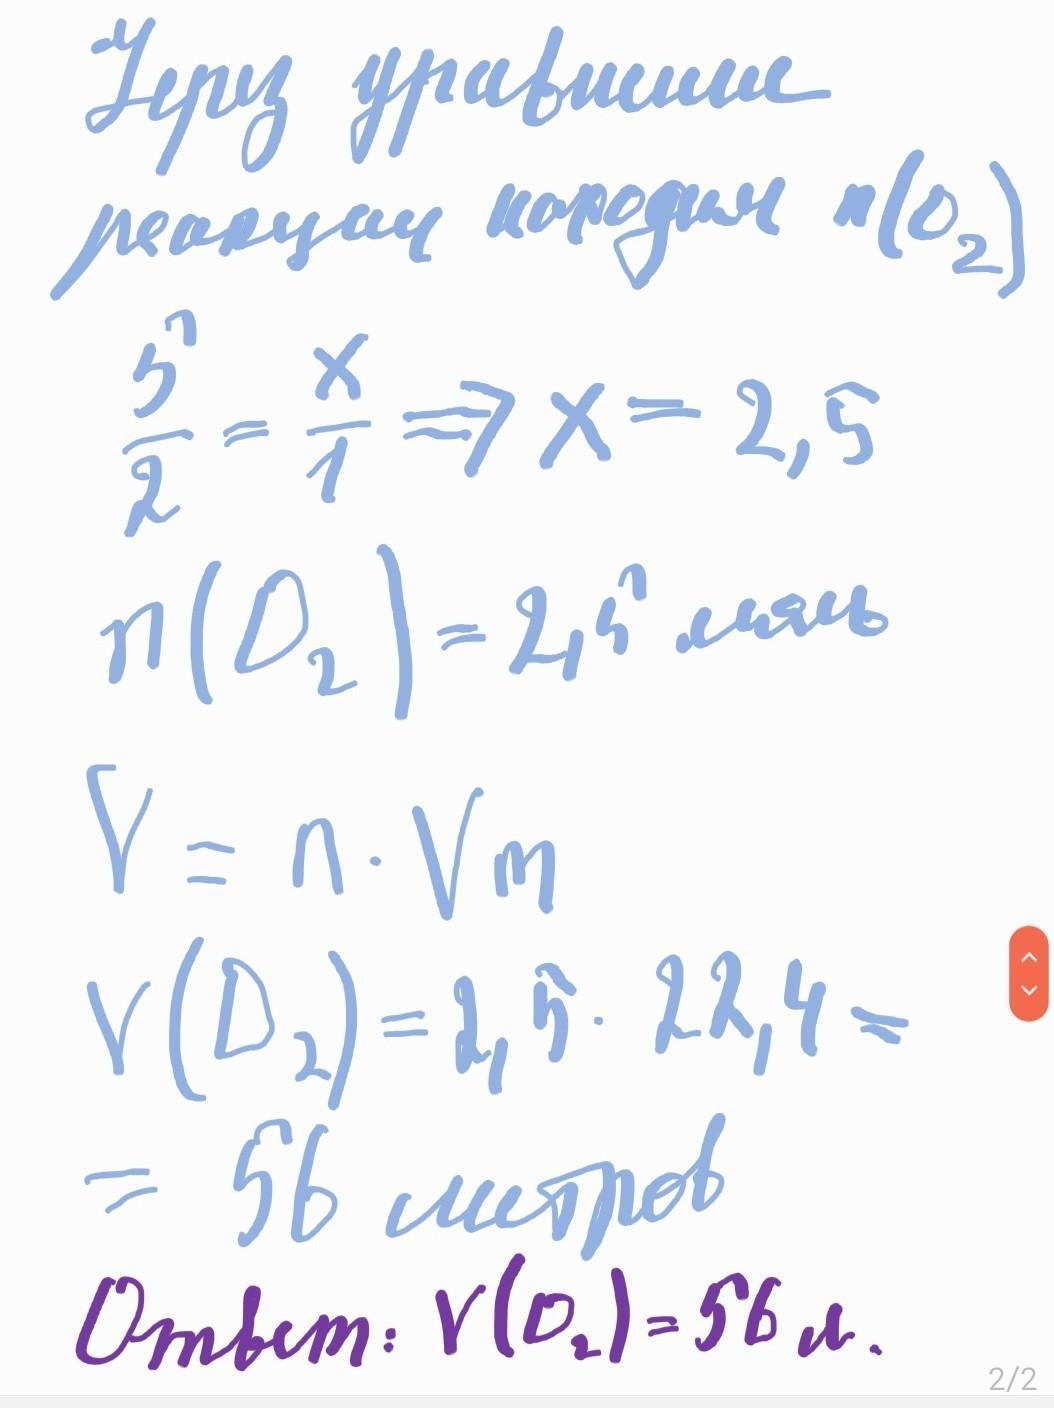 Через уравнение
реакции находим n(O₂)
5/2 = x/1 => x = 2,5
n(O₂) = 2,5 моль
V = n · Vm
V(O₂) = 2,5 · 22,4 =
= 56 литров
Ответ: V(O₂) = 56 л.
2/2